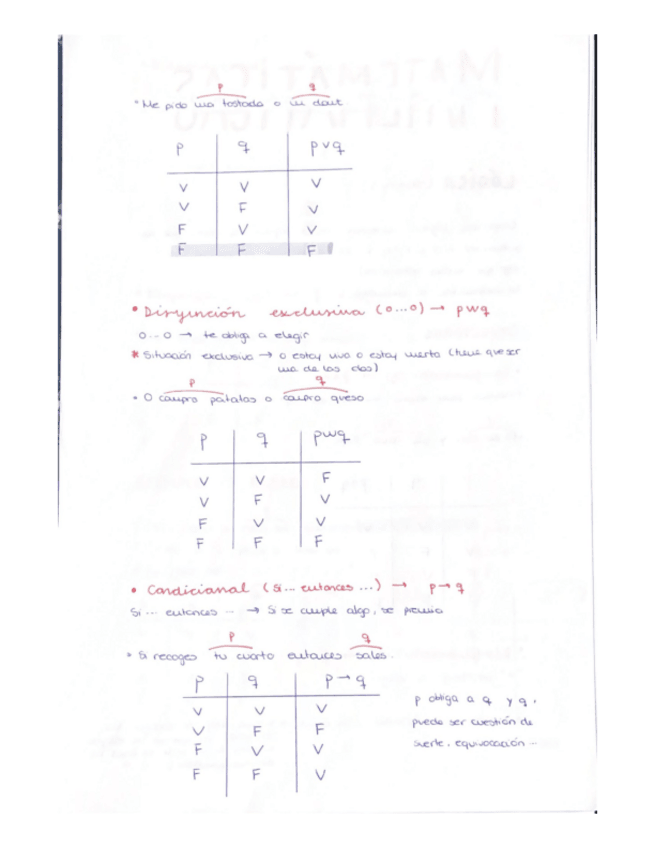 p q
• Me pido una tostada o un donut
p q p v q
V V V
V F V
F V V
F F F
• Disyunción exclusiva (o...o) → p w q
o...o → te obliga a elegir
* Situación exclusiva → o estoy vivo o estoy muerto (tiene que ser
una de las dos)
p q
• O compro patatas o compro queso
p q p w q
V V F
V F V
F V V
F F F
• Condicional (si... entonces ...) → p → q
Si ... entonces ... → Si se cumple algo, se premia
p q
• Si recoges tu cuarto entonces sales.
p q p → q
V V V
V F F
F V V
F F V
p obliga a q y q,
puede ser cuestión de
suerte, equivocación ...